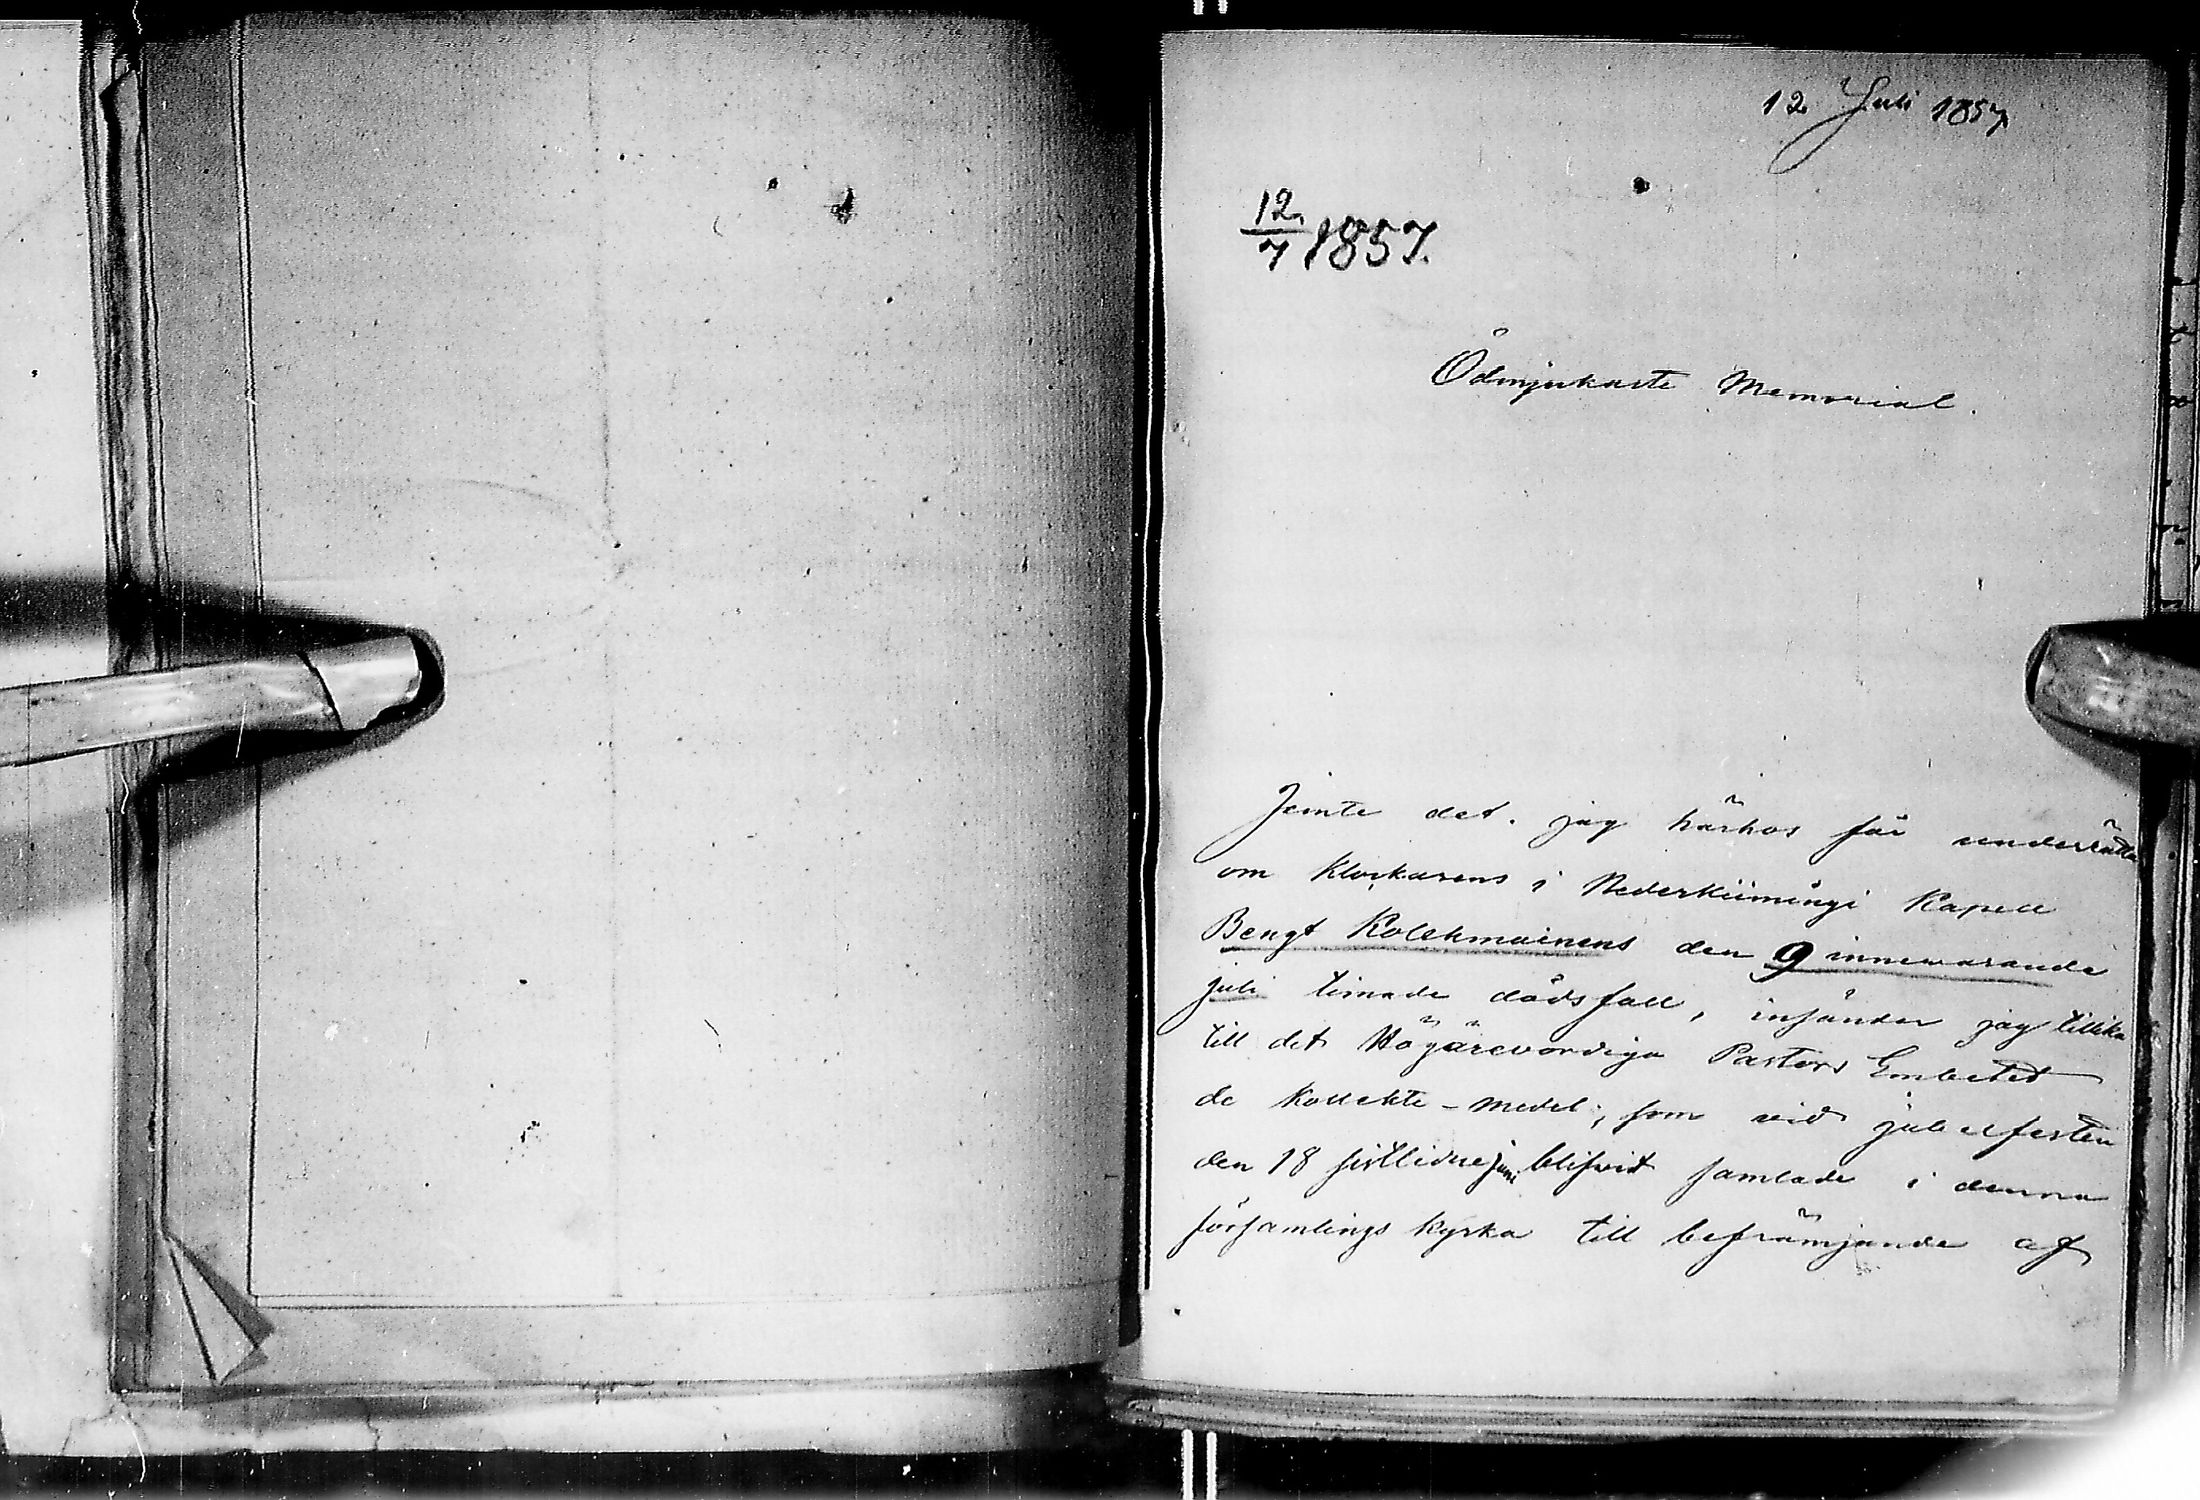 12 Juli 1857
12/7 1857.
Ödmjukaste Memorial.
Jemte det jag härhos får underrätta
om Klockarens i Nederkiimingi Kapell
Bengt Kolehmainens den 9 innevarande
juli timade dödsfall, insänder jag tillika
till det Högärevördiga Pastors Embetet
de kollekte-medel, som vid jubelfesten
den 18 sistlidne juni blifvit samlade i denna
församlings kyrka till befrämjande af